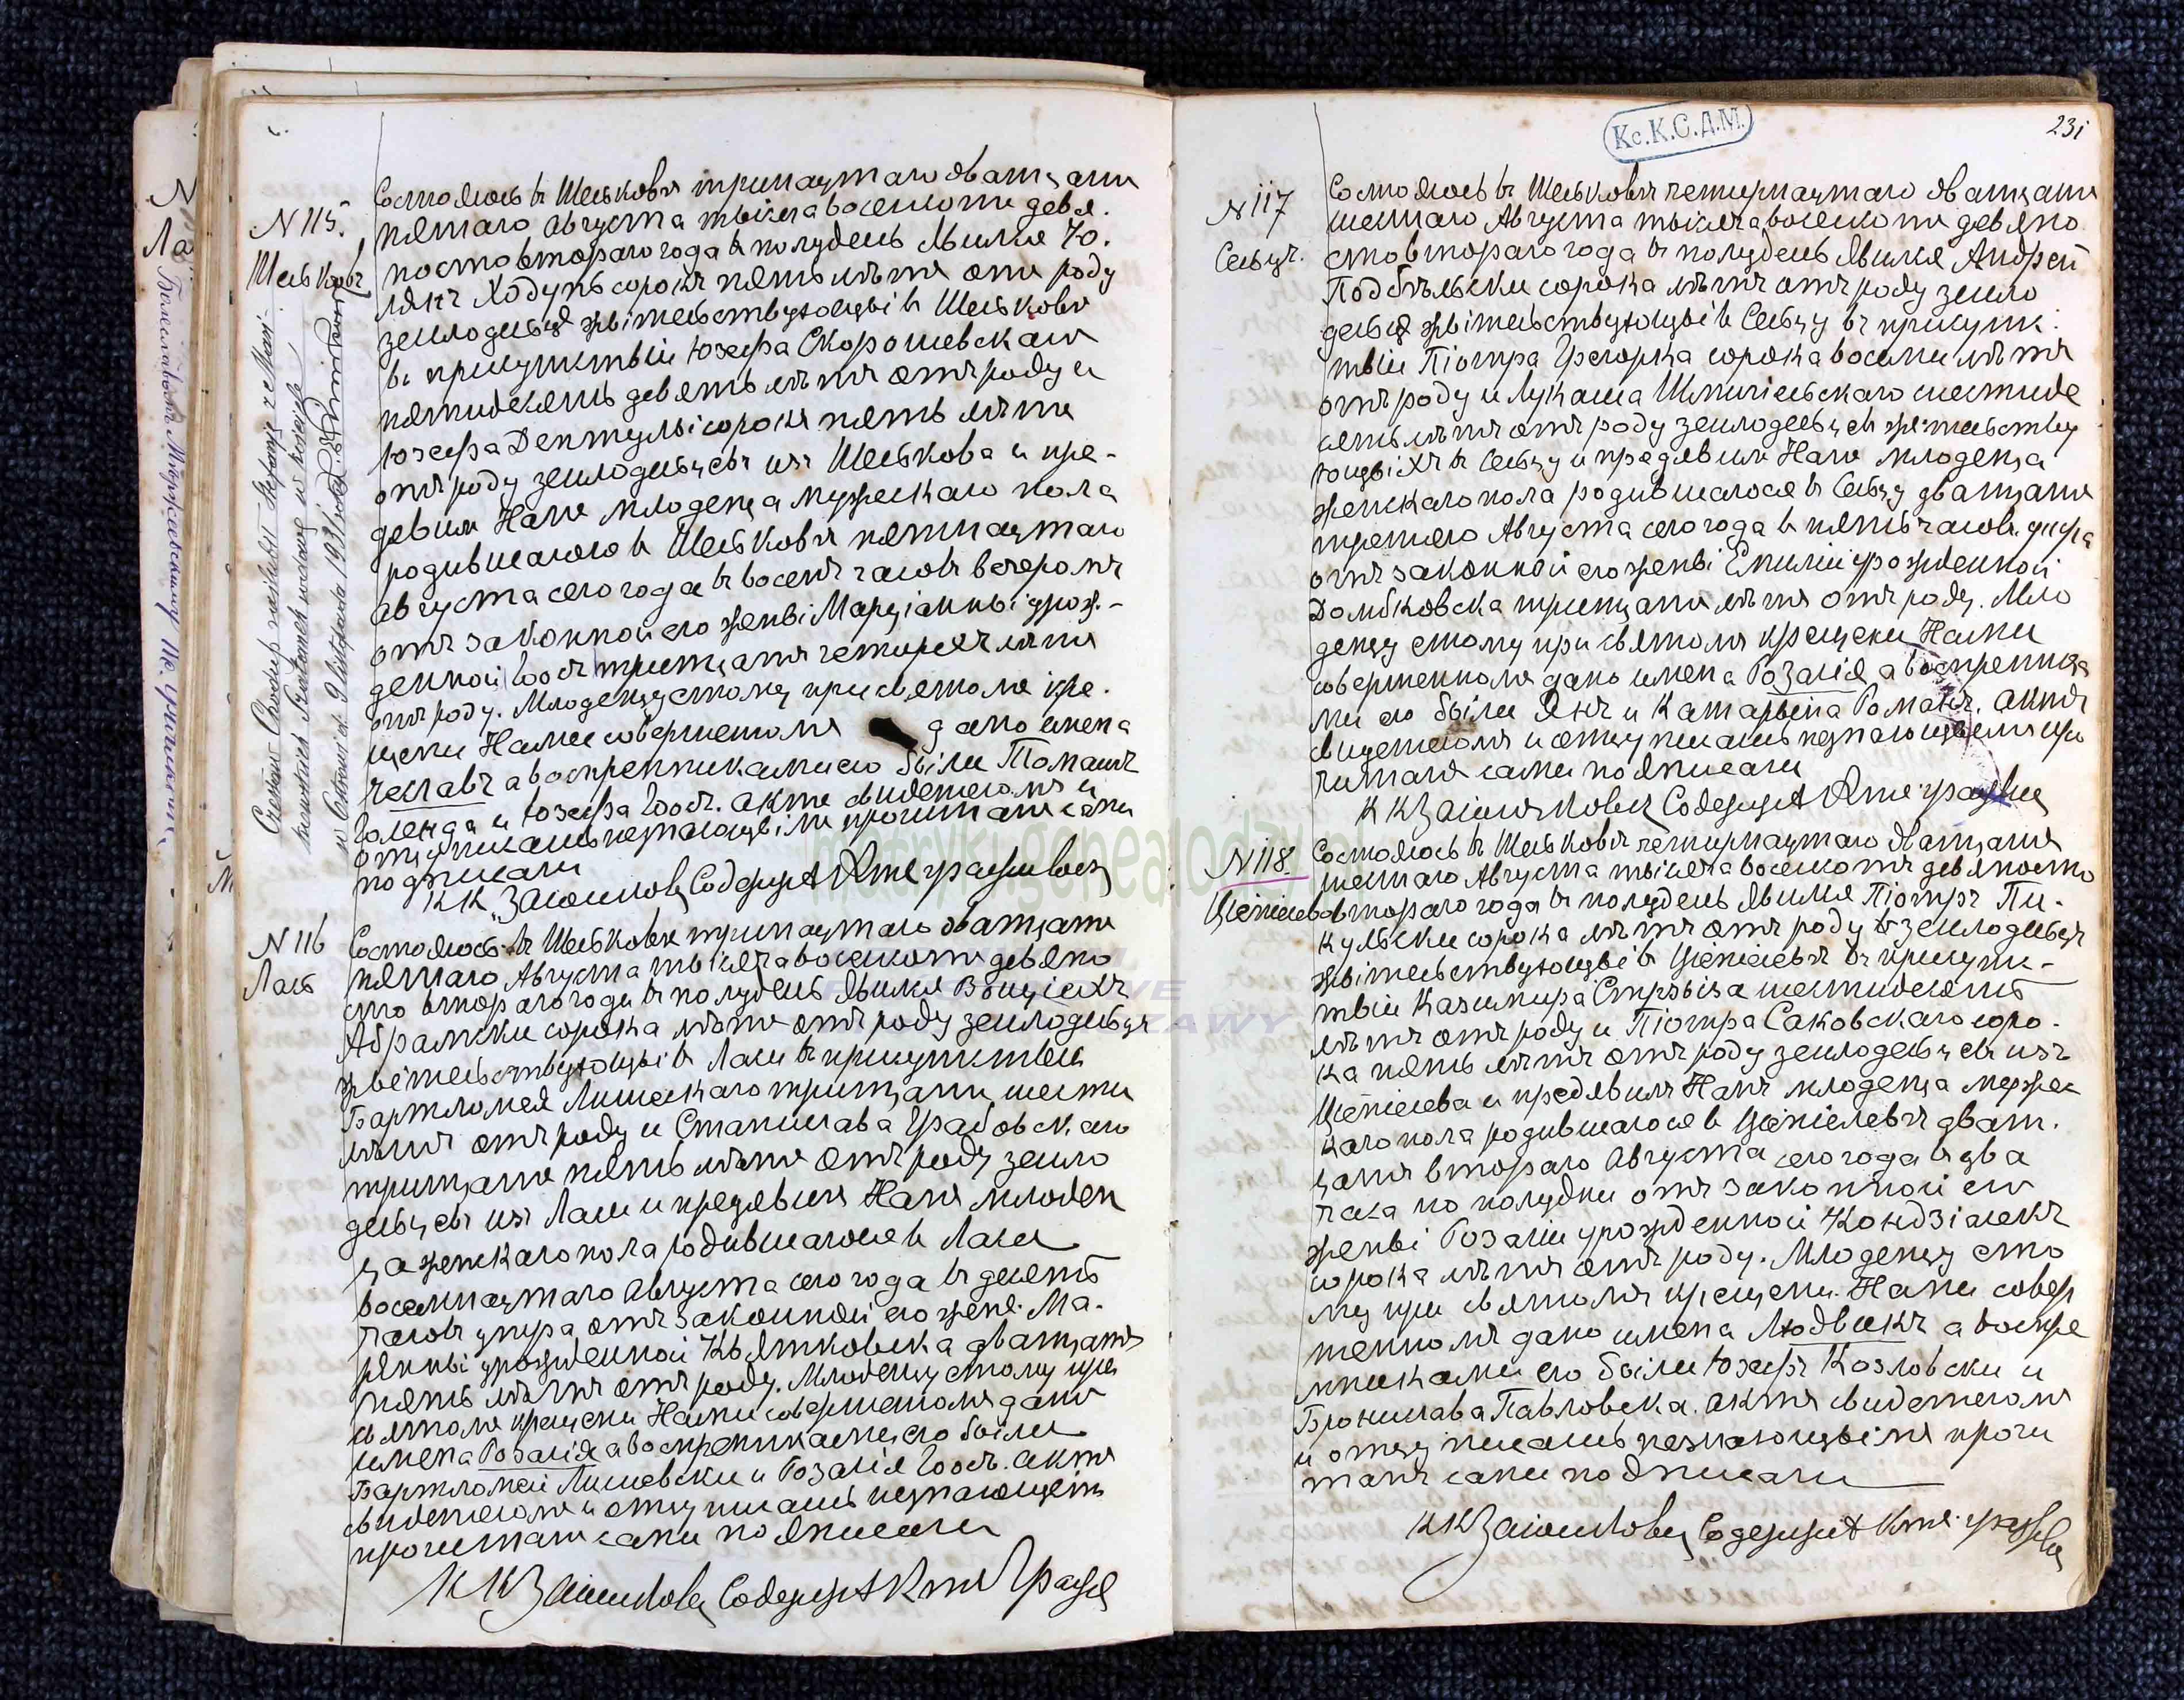 N 115.
Шельковъ
Состоялось въ Шельковѣ тринацтаго дватцати
пятаго Августа тысяча восемсотъ девя.
ностовтораго года въ полудень явился Ю.
ліянъ Ходупъ сорокъ пять лѣтъ отъ роду
земледѣлецъ жытельствующы въ Шельковѣ
въ присутствіи Юзефа Скорошевскаго
пятидесять девять лѣтъ отъ роду и
Юзефа Дептулы сорокъ пять лѣтъ
отъ роду земледѣльцевъ изъ Шелькова и пре-
девилъ Намъ младенца мужескаго пола
родившагося въ Шельковѣ пятнацтаго
Августа сего года въ восемъ часовъ вечеромъ
отъ законной его жены Марціанны урож-
денной Гоосъ тритцать четыре лѣтъ
отъ роду. Младенцу этому при святомъ кре.
щени Нами совершенномъ дано имена
Чеславъ а воспренниками его были Томашъ
Голенда и Юзефа Гоосъ. Актъ свидетелямъ и
отцу писать незнающымъ прочитанъ сами
подписали
КК Содержащ Акт гражд
Czesław Chodup zaślubił Stefanję z
N 116
Лась
Состоялось въ Шельковѣ тринацтаго дватцати
пятаго Августа тысяча восемсотъ девяно
сто втораго года въ полудень явился Войцѣхъ
Абрамски сорока лѣтъ отъ роду земледѣлецъ
жытельствующы въ Ласи въ присутствіи
Бартломея Лишескаго тритцати шести
лѣтъ отъ роду и Станислава Грабовскаго
тритцати пять лѣтъ отъ роду земле
дельцевъ изъ Ласи и предявилъ Намъ младен
ца женскаго пола родившагося въ Ласи
восемнацтаго Августа сего года въ десять
часовъ утра отъ законной его жены Ма.
рянны урожденной Квятковска двадцать
пять лѣтъ отъ роду. Младенцу этому при
святомъ крещени Нами совершенномъ дано
имена Розалія а воспренниками его были
Бартломей Лишевски и Розалія Гоосъ. Актъ
свидетелямъ и отцу писать незнающымъ
прочитанъ сами подписали
КК Содержащ Акт Гражд
Кс.К.С.А.М.
231
N 117
Сельцъ.
Состоялось въ Шельковѣ четырнацтаго дватцать
шестаго Августа тысяча восемсотъ девяно
стовтораго года въ полудень явился Андрей
Подбѣльски сорока лѣтъ отъ роду земле
делецъ жытельствующы въ Сельцу въ присутс
твіи Піотра Грегорка сорока восеми лѣтъ
отъ роду и Лукаша Шмигельскаго шестиде
сять лѣтъ отъ роду земледельцевъ жытельству
ющыхъ въ Сельцу и предявилъ Намъ младенца
женскаго пола родившагося въ Сельцу двадцать
третяго Августа сего года въ пять часовъ утра
отъ законной его жены Емиліи урожденной
Домбковска тритцати лѣтъ отъ роду. Мла
денцу этому при святомъ крещени Нами
совершенномъ дано имена Розалія а воспренника
ми его были Янъ и Катарына Романъ. Актъ
свидетелямъ и отцу писать незнающымъ про
читанъ сами подписали
КК Содержащ Акт гражд
N 118
Цепелево
Состоялось въ Шельковѣ четырнацтаго двадцать
шестаго Августа тысяча восемсотъ девяносто
втораго года въ полудень явился Піотръ Пи.
кульски сорока лѣтъ отъ роду земледѣлецъ
жытельствующы въ Цепелевѣ въ присутс-
твіи Казимира Стржыза шестидесятъ
лѣтъ отъ роду и Піотра Саковскаго соро.
ка пять лѣтъ отъ роду земледельцевъ изъ
Цепелева и предявилъ Намъ младенца мужес
каго пола родившагося въ Цепелевѣ двад.
цать втораго Августа сего года въ два
часа по полудни отъ законной его
жены Розаліи урожденной Кондзіолекъ
сорока лѣтъ отъ роду. Младенцу это
му при святомъ крещени Нами совер
шенномъ дано имена Людвикъ а воспре
нниками его были Юзефъ Козловски и
Бронислава Павловска. Актъ свидетелямъ
и отцу писать незнающымъ прочи
танъ сами подписали
КК Содержащ Акт гражд
metryki.genealodzy.pl